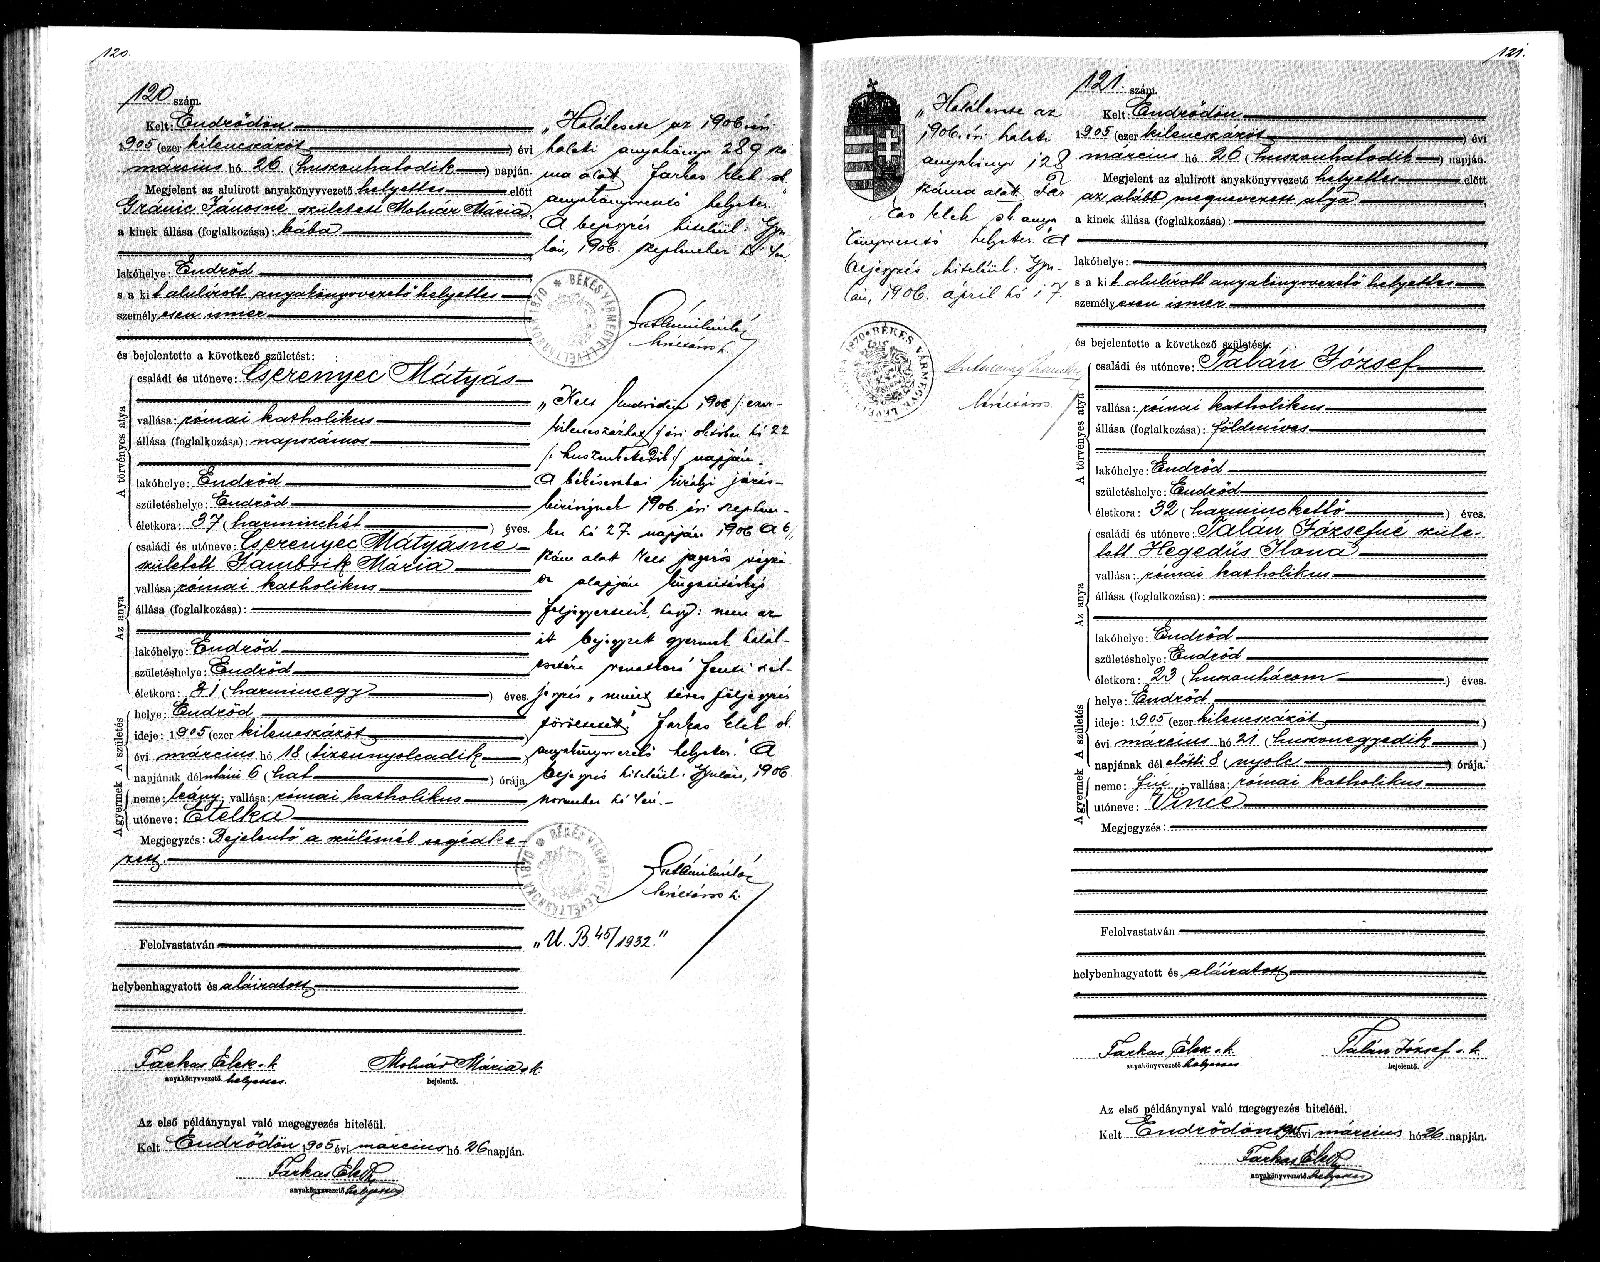 120.
120 szám.
Kelt: Endrődön
1905 (ezer kilencszázöt) évi
március hó 26 (huszonhatodik) napján.
Megjelent az alulirott anyakönyvvezető helyettes előtt
Gránic Jánosné született Molnár Mária,
a kinek állása (foglalkozása): bába
lakóhelye: Endrőd
s a kit alulírott anyakönyvvezető helyettes
személyesen ismer
és bejelentette a következő születést:
A törvényes atya
családi és utóneve: Cserenyec Mátyás
vallása: római katholikus
állása (foglalkozása): napszámos
lakóhelye: Endrőd
születéshelye: Endrőd
életkora: 37 (harminchét) éves.
Az anya
családi és utóneve: Cserenyec Mátyásné
született Jambrik Mária
vallása: római katholikus
állása (foglalkozása):
lakóhelye: Endrőd
születéshelye: Endrőd
életkora: 31 (harmincegy) éves.
A születés
helye: Endrőd
ideje: 1905 (ezer kilencszázöt)
évi március hó 18 (tizennyolcadik)
napjának délutáni 6 (hat) órája.
A gyermek
neme: leány; vallása: római katholikus
utóneve: Etelka
Megjegyzés: Bejelentő a szülésnél segédke-
zett.
Felolvastatván
helybenhagyatott és aláíratott
Farkas Elek s. k. Molnár Mária s. k.
anyakönyvvezető helyettes. bejelentő.
Az első példánynyal való megegyezés hiteléül.
Kelt Endrődön, 1905 évi március hó 26 napján.
Farkas Elek
anyakönyvvezető helyettes
„Halálesete az 1906. évi
halotti anyakönyv 289 szá
ma alatt Farkas Elek sk.
anyakönyvvezető helyettes."
A bejegyzés hiteléül: Gyu-
lán, 1906. szeptember hó 4én.
BÉKÉSVÁRMEGYE LEVÉLTÁROKA 1870
levéltáros h.
„Kelt Endrődön, 1906 /: ezer-
kilencszázhat :/ évi október hó 22
/: huszonkettedik :/ napján.
A békéscsabai királyi járás-
bíróságnak 1906. évi szeptem-
ber hó 27. napján 1906 B 6/
szám alatt kelt jogerős végzé
se alapján kiigazításkép
feljegyeztetik, hogy: nem az
itt bejegyzett gyermek halál-
esetére vonatkozó fenti szél-
jegyzés „mint téves feljegyzés
töröltetett" Farkas Elek sk.
anyakönyvvezető helyettes." A
bejegyzés hiteléül. Gyulán, 1906
november hó 4én.
BÉKÉSVÁRMEGYE LEVÉLTÁROKA 1870
levéltáros h.
„U. B. 45/1932."
121.
„Halálesete az
1906. évi halotti
anyakönyv 128
száma alatt Far
kas Elek sk anya
könyvvezető helyettes." A
bejegyzés hiteléül: Gyu-
lán, 1906. április hó 17.
BÉKÉSVÁRMEGYE LEVÉLTÁROKA 1870
levéltáros h.
121. szám.
Kelt: Endrődön
1905 (ezer kilencszázöt) évi
március hó 26 (huszonhatodik) napján.
Megjelent az alulirott anyakönyvvezető helyettes előtt
az alább megnevezett atya
a kinek állása (foglalkozása):
lakóhelye:
s a kit alulírott anyakönyvvezető helyettes
személyesen ismer
és bejelentette a következő születést:
A törvényes atya
családi és utóneve: Talán József
vallása: római katholikus
állása (foglalkozása): földmives
lakóhelye: Endrőd
születéshelye: Endrőd
életkora: 32 (harminckettő) éves.
Az anya
családi és utóneve: Talán Józsefné szüle-
tett Hegedüs Ilona
vallása: római katholikus
állása (foglalkozása):
lakóhelye: Endrőd
születéshelye: Endrőd
életkora: 23 (huszonhárom) éves.
A születés
helye: Endrőd
ideje: 1905 (ezer kilencszázöt)
évi március hó 21 (huszonegyedik)
napjának délelőtti 8 (nyolc) órája.
A gyermek
neme: fiú; vallása: római katholikus
utóneve: Vince
Megjegyzés:
Felolvastatván
helybenhagyatott és aláíratott
Farkas Elek s. k. Talán József s. k.
anyakönyvvezető helyettes bejelentő.
Az első példánynyal való megegyezés hiteléül.
Kelt Endrődön 1905 évi március hó 26 napján.
Farkas Elek
anyakönyvvezető helyettes